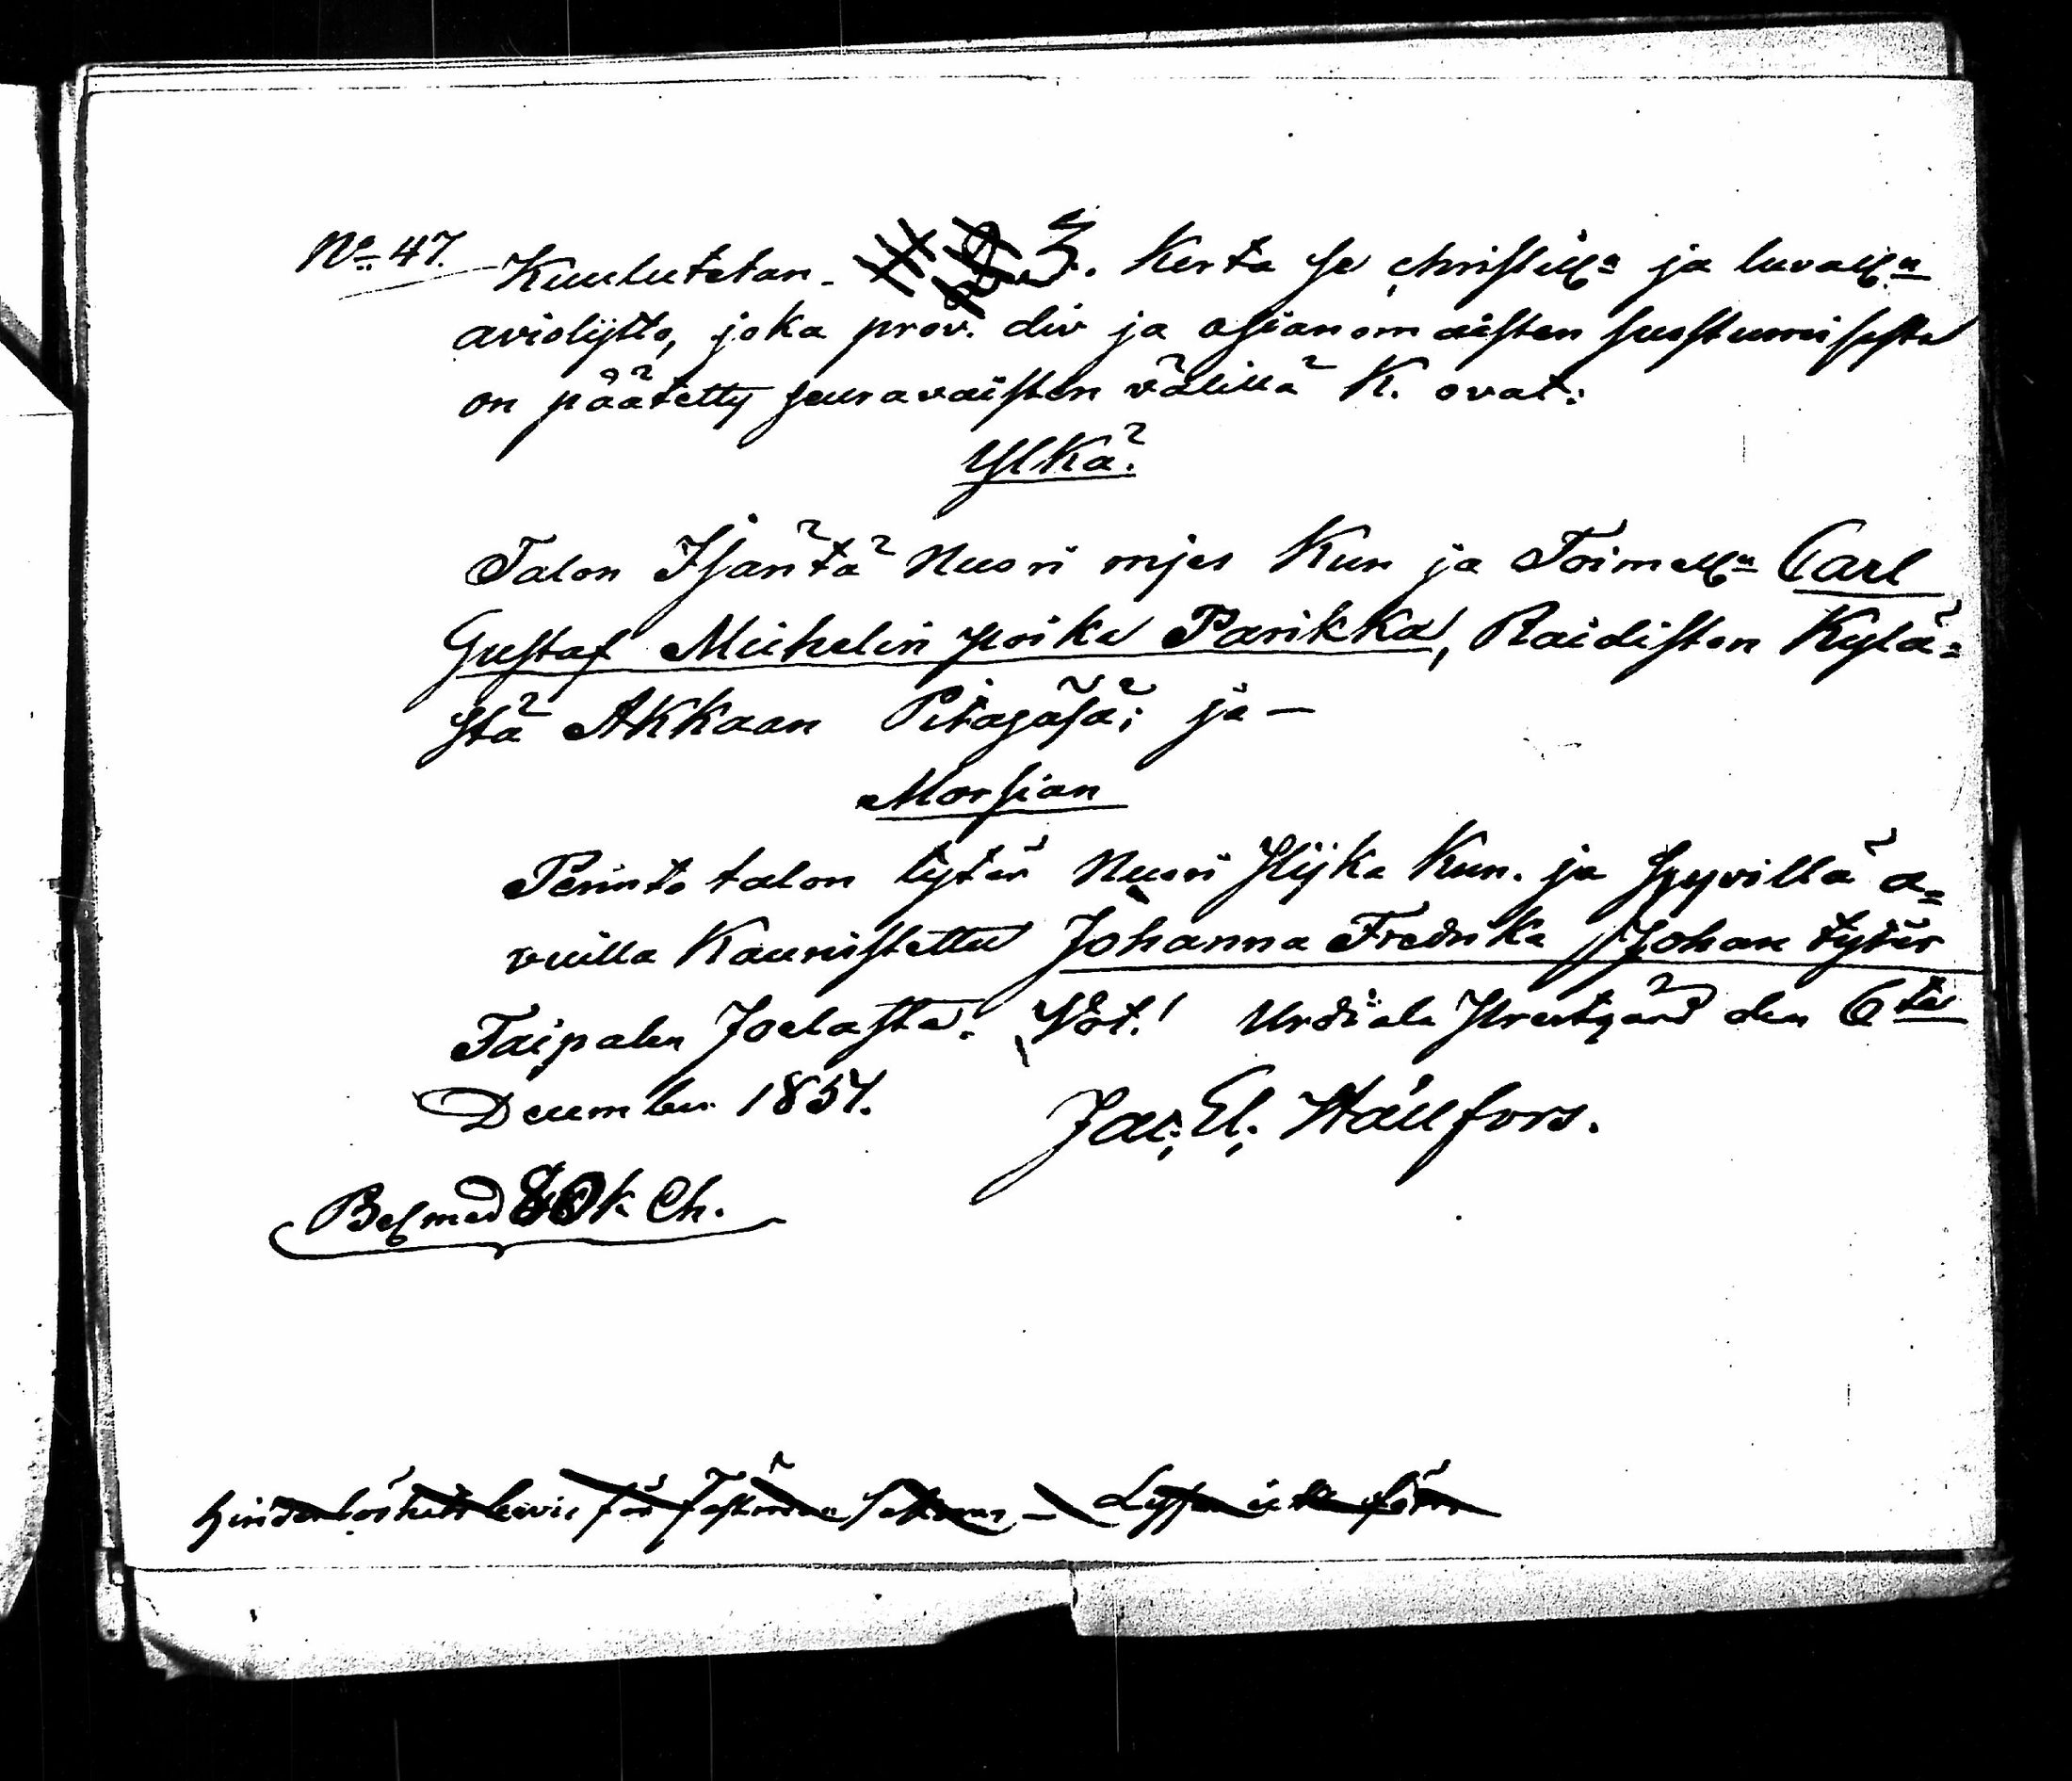 No 47. Kuulutetan. 3. Kerta se christill:n ja luvall:n
aviolijtto, joka prov. div ja asianomaisten suostumisesta
on päätetty seuravaisten välillä K. ovat:
Ylkä.
Talon Isäntä Nuori mjes Kun ja Toimell:n Carl
Gustaf Michelin poika Parikka, Raidisten Kylä=
stä Akkaan Pitäjäsä; ja —
Morsian
Perinto talon tytär Nuori Pijka Kun. ja Hyvillä a=
vuilla Kaunistettu Johanna Fredrika Johan tytär
Taipalen Joelasta. Urdiala Prestgård den 6te
December 1857.
Jac. El. Hällfors.
Bef med 80 k Ch.